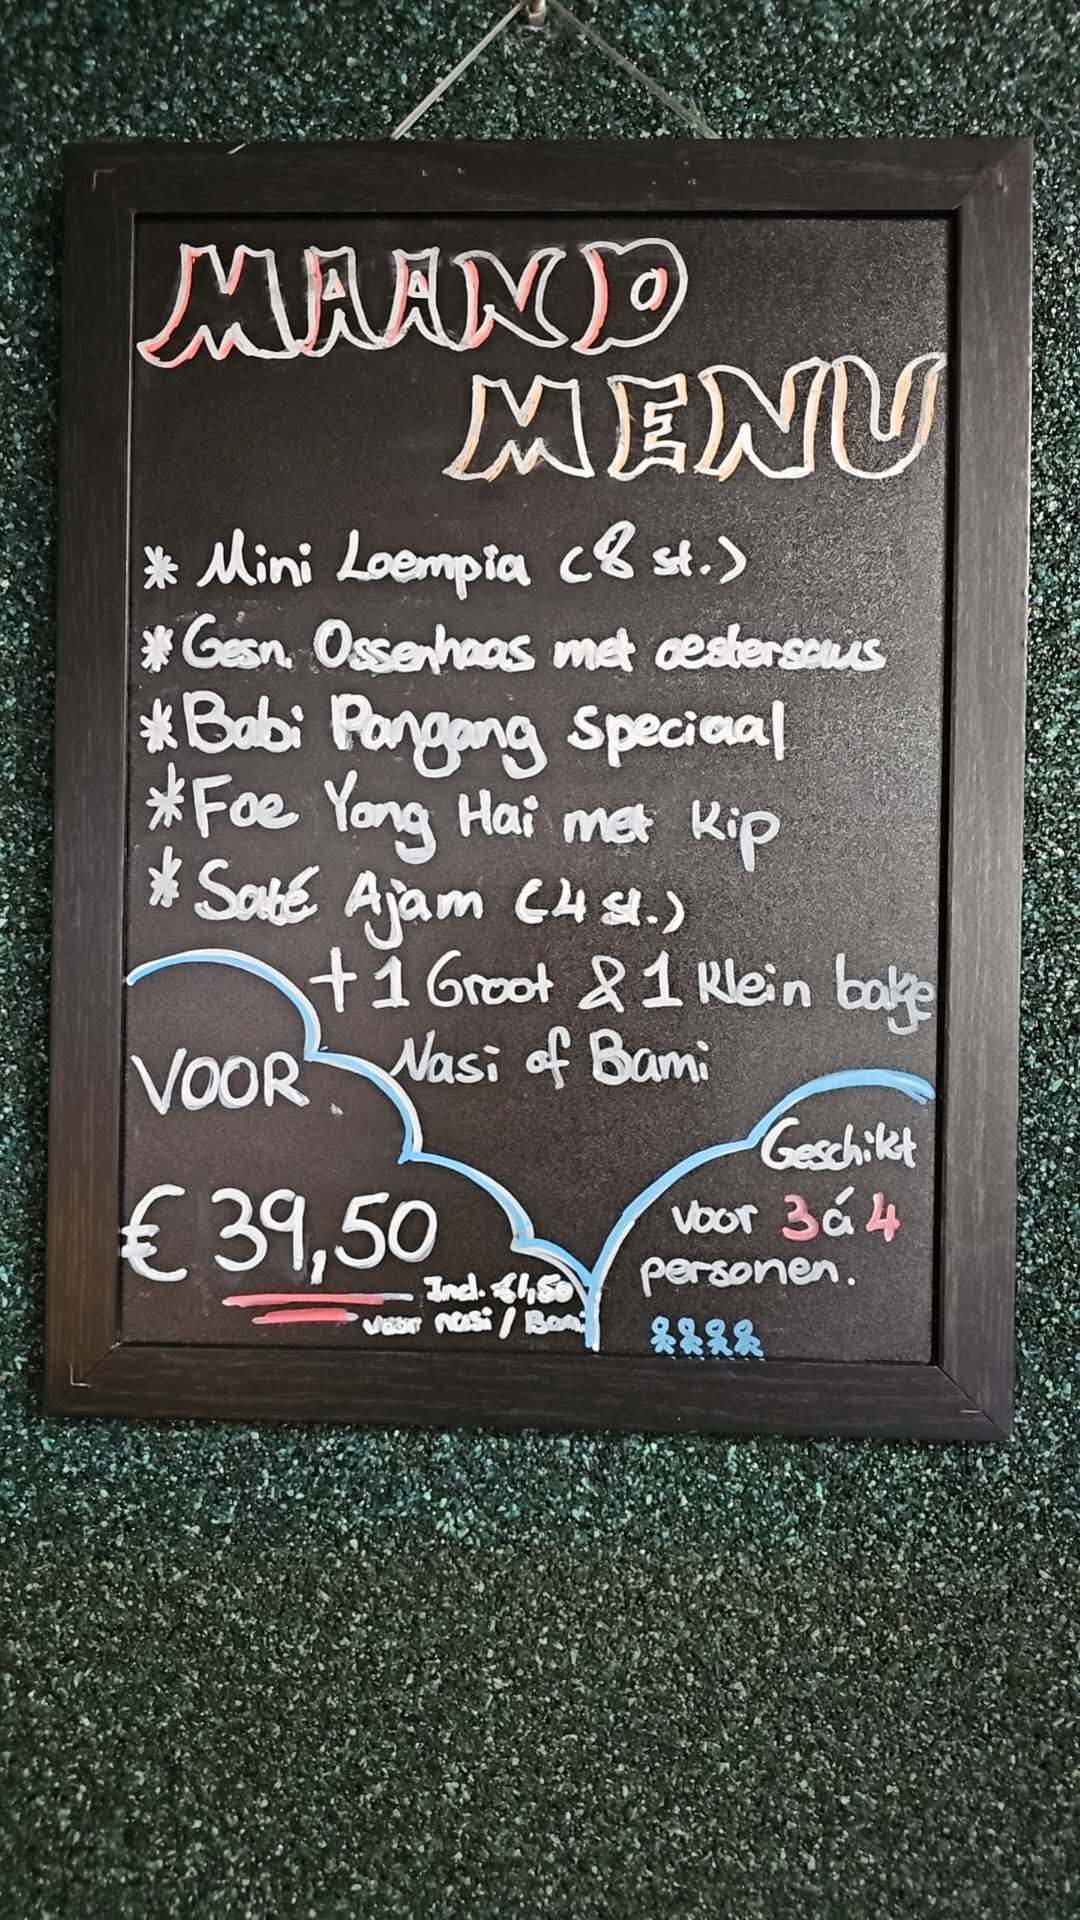 MAAND
MENU
* Mini Loempia (8 st.)
* Gesn. Ossenhaas met oestersaus
* Babi Pangang speciaal
* Foe Yong Hai met Kip
* Saté Ajam (4 st.)
+ 1 Groot & 1 Klein bakje
Nasi of Bami
VOOR
€ 39,50
Incl. €1,50
voor nasi / Bami
Geschikt
voor 3 á 4
personen.